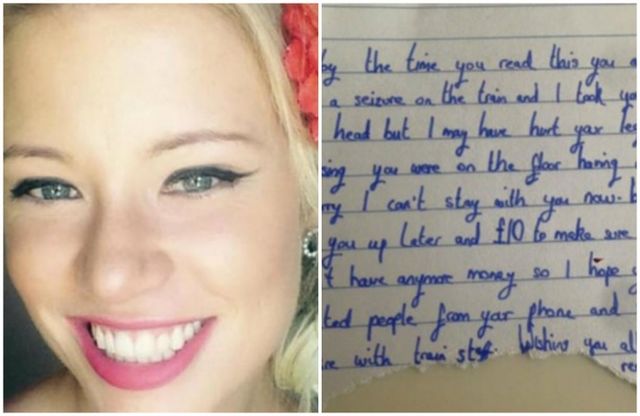 by the time you read this you a
a seizure on the train and I took yo
head but I may have hurt your leg
sing you were on the floor having
ry I can't stay with you now. b
you up later and £10 to make sure
t have anymore money so I hope
ted people from your phone and
re with train staff. Wishing you al
re